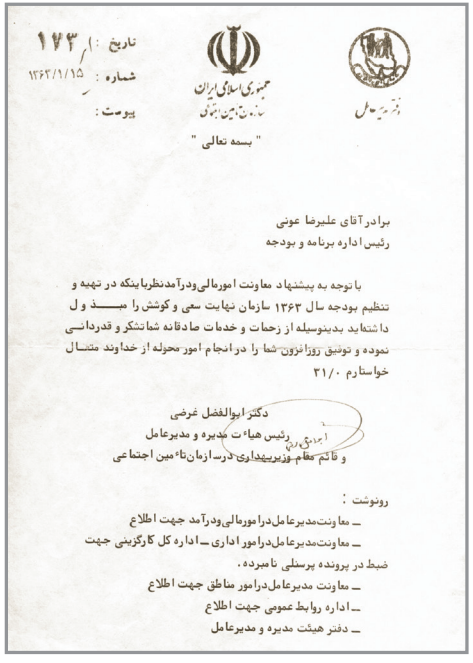 تاریخ : ۱۷۳/۱
شماره : ۱۳۶۳/۱/۱۵
پیوست :
جمهوری اسلامی ایران
سازمان تامین اجتماعی
دفتر مدیر عامل
" بسمه تعالی "
برادر آقای علیرضا عونی
رئیس اداره برنامه و بودجه
با توجه به پیشنهاد معاونت امور مالی و درآمد نظر باینکه در تهیه و
تنظیم بودجه سال ۱۳۶۳ سازمان نهایت سعی و کوشش را مبـــذ و ل
داشته‌اید بدینوسیله از زحمات و خدمات صادقانه شما تشکر و قدردانــی
نموده و توفیق روزافزون شما را در انجام امور محوله از خداوند متعــال
خواستارم ۳۱/۰
دکتر ابوالفضل غرضی
رئیس هیاءت مدیره و مدیرعامل
و قائم مقام وزیر بهداری در سازمان تاءمین اجتماعی
رونوشت :
ــ معاونت مدیرعامل در امور مالی و درآمد جهت اطلاع
ــ معاونت مدیرعامل در امور اداری ــ اداره کل کارگزینی جهت
ضبط در پرونده پرسنلی نامبرده .
ــ معاونت مدیرعامل در امور مناطق جهت اطلاع
ــ اداره روابط عمومی جهت اطلاع
ــ دفتر هیئت مدیره و مدیرعامل